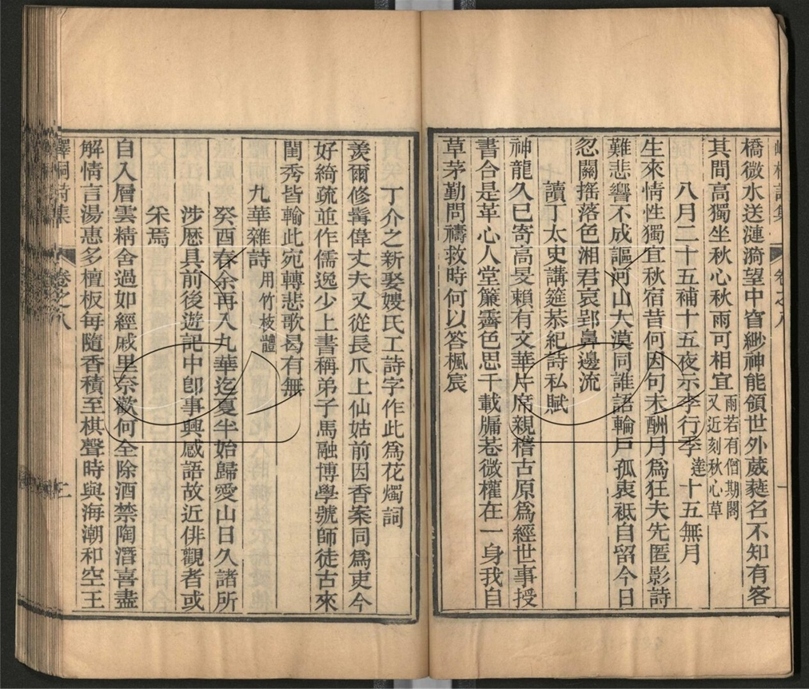 橋微水送漣漪望中窅緲神能領世外葳蕤名不知有客
其間高獨坐秋心秋雨可相宜雨若有僧期閣又近刻秋心草
八月二十五補十五夜示李行季達十五無月
生來情性獨宜秋宿昔何因句未酬月為狂夫先匿影詩
難悲響不成謳河山大漠同誰語輪戶孤衷祗自留今日
忽關搖落色湘君哀郢鼻邊流
讀丁太史講筵恭紀詩私賦
神龍久已寄高旻賴有文華片席親稽古原為經世事授
書合是革心人堂簾霽色思千載牖巷微權在一身我自
草茅勤問禱救時何以答楓宸
丁介之新娶嫂氏工詩字作此為花燭詞
羨爾修髯偉丈夫又從長爪上仙姑前因香案同為吏今
好綺疏並作儒逸少上書稱弟子馬融博學號師徒古來
閨秀皆輸此宛轉悲歌曷有無
九華雜詩用竹枝體
癸酉春余再入九華迄夏半始歸愛山日久諸所
涉歷具前後遊記中卽事興感語故近俳觀者或
采焉
自入層雲精舍過如經戚里奈歡何全除酒禁陶潛喜盡
解情言湯惠多檀板每隨香積至棋聲時與海潮和空王
詩集
卷之八